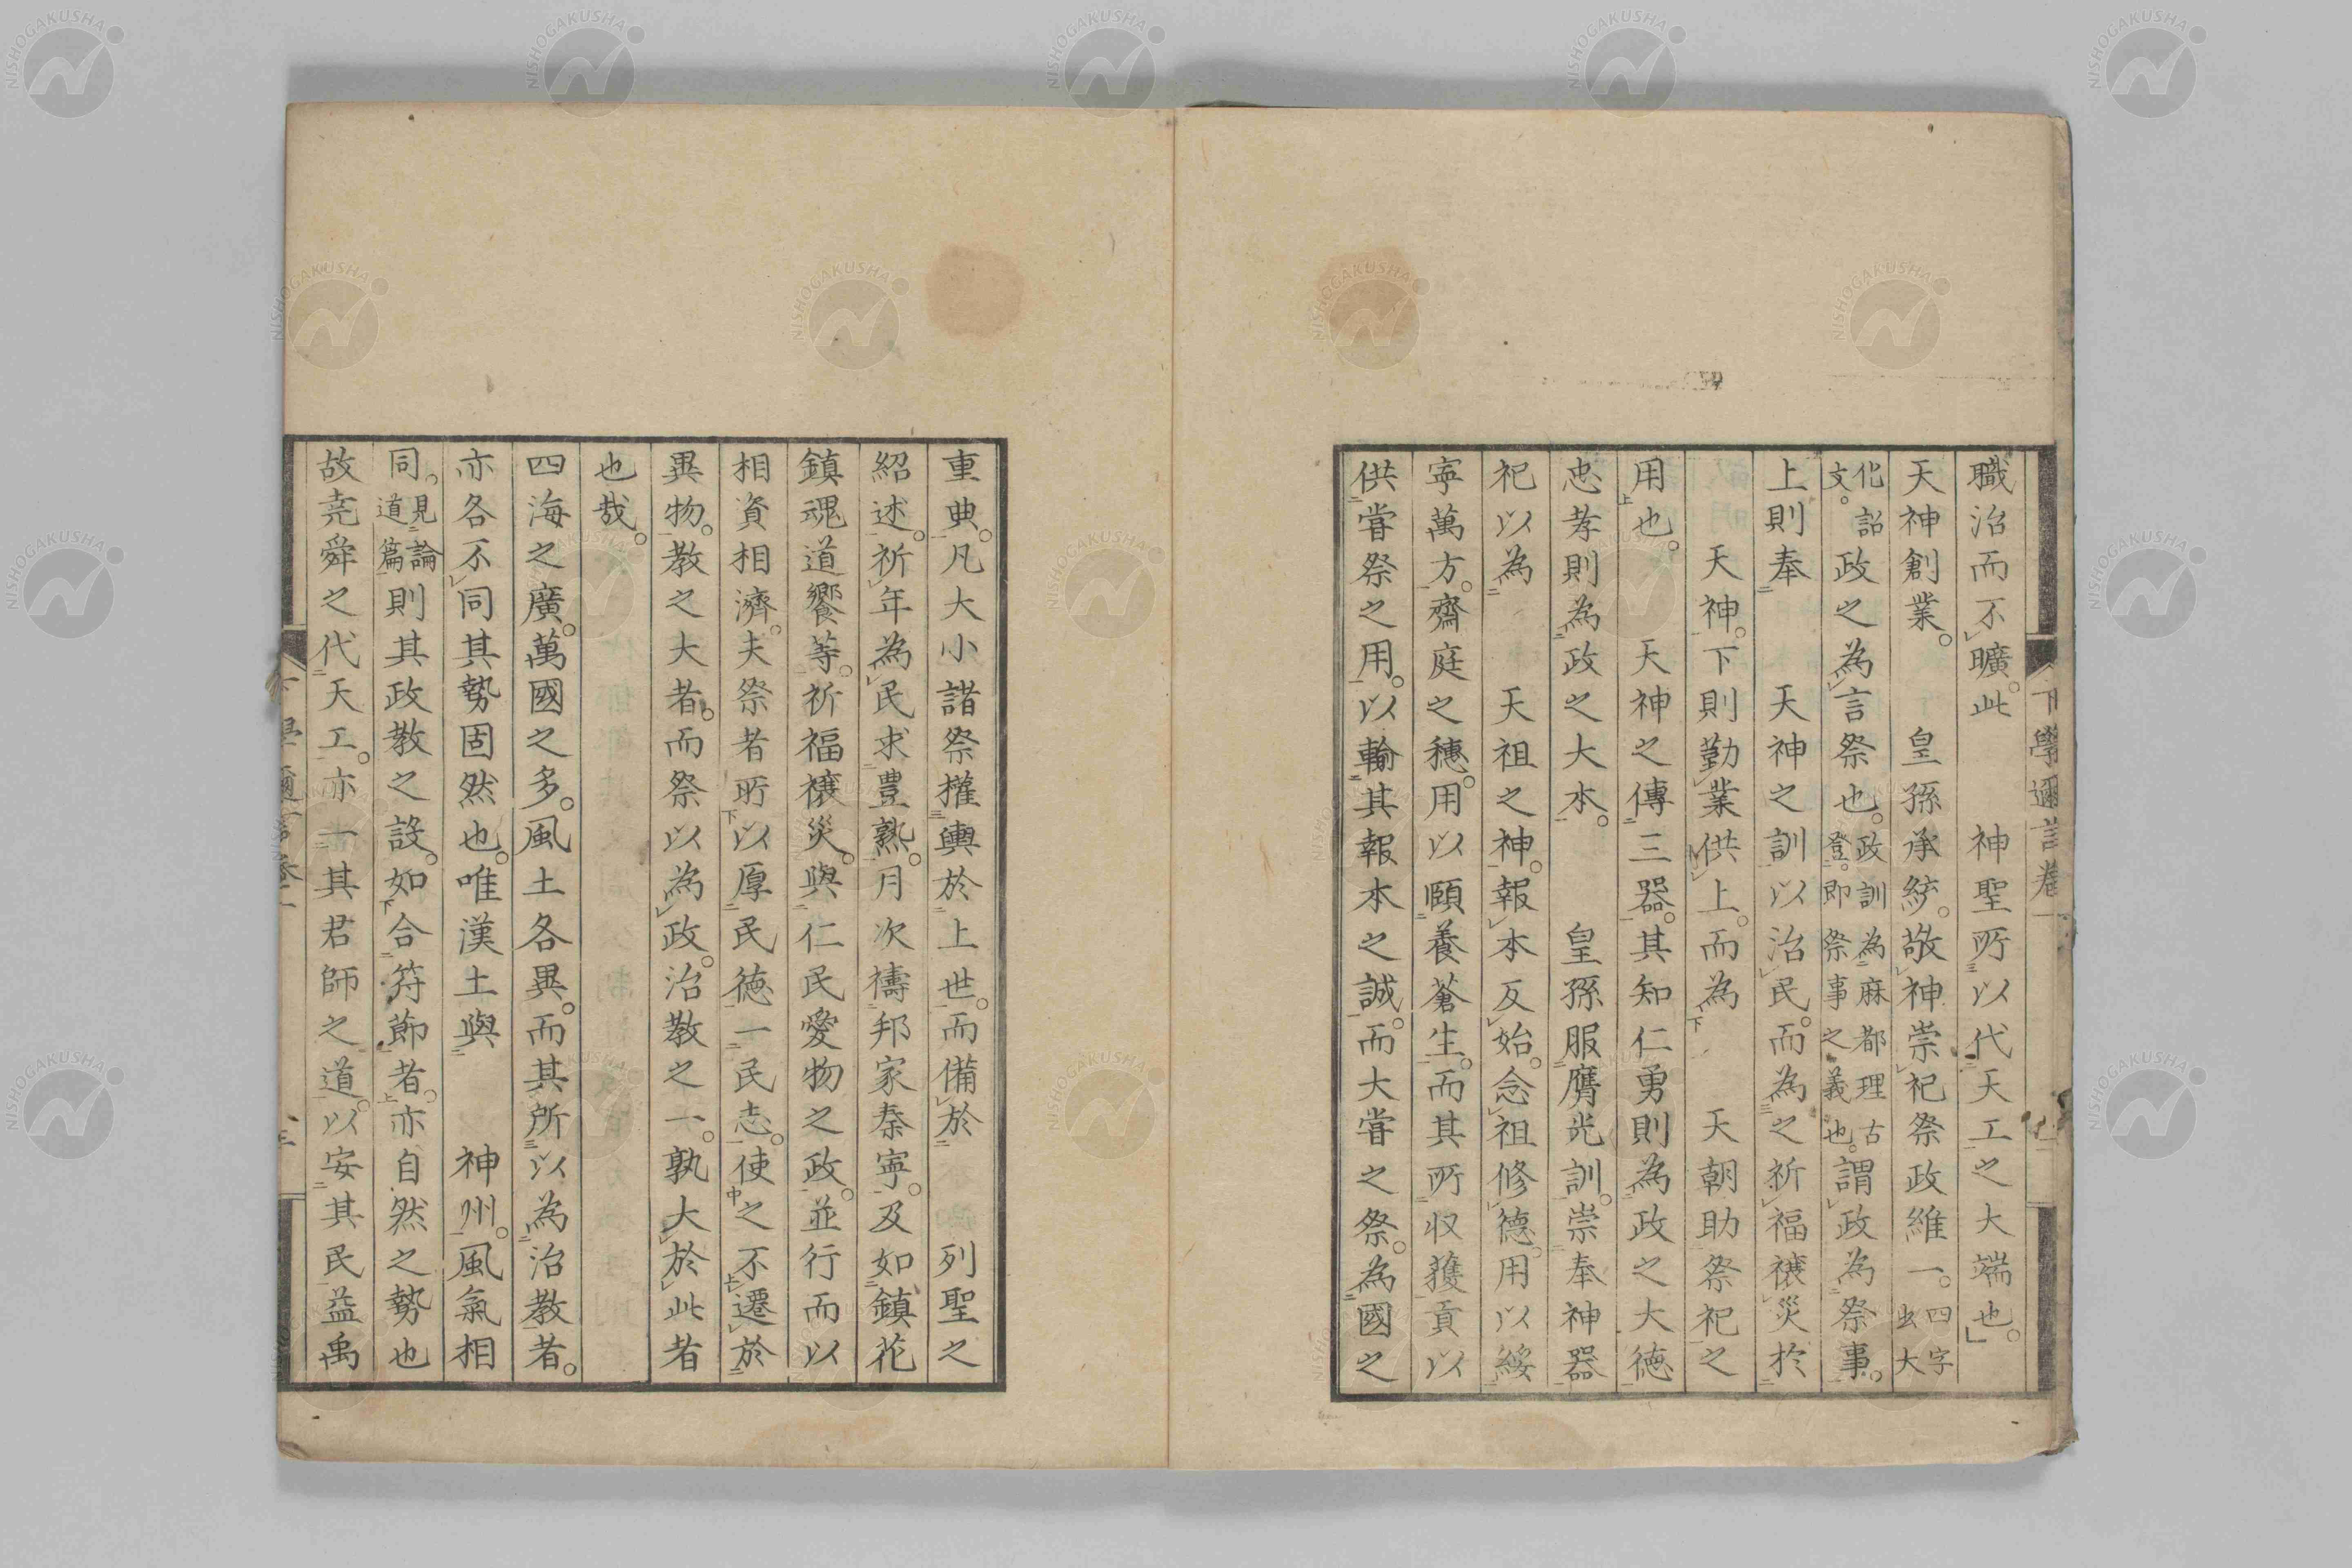 職治而不曠。此　神聖所以代天工之大端也。」
天神創業。　皇孫承統。敬神崇祀祭政維一。四字出大
化詔文。政之為言祭也。政訓為麻都理古登。即祭事之義也。謂政為祭事。
上則奉　天神之訓以治民。而為之祈福禳災於
天神。下則勤業供上。而為　天朝助祭祀之
用也。　天神之傳三器。其知仁勇則為政之大德
忠孝則為政之大本。　皇孫服膺光訓。崇奉神器
祀以為　天祖之神。報本反始。念祖修德。用以綏
寧萬方。齋庭之穗。用以頤養蒼生。而其所収獲貢以
供嘗祭之用。以輸其報本之誠。而大嘗之祭。為國之
下學邇言卷一
重典。凡大小諸祭權輿於上世。而備於　列聖之
紹述。祈年為民求豊熟。月次禱邦家泰寧。及如鎮花
鎮魂道饗等。祈福禳災。與仁民愛物之政。並行而以
相資相濟。夫祭者所以厚民徳一民志。使之不遷於
異物。教之大者。而祭以為政。治教之一。孰大於此者
也哉。
四海之廣。萬國之多。風土各異。而其所以為治教者。
亦各不同其勢固然也。唯漢土與　神州。風氣相
同。見論道篇則其政教之設。如合符節者。亦自然之勢也
故堯舜之代天工。亦一其君師之道。以安其民益禹